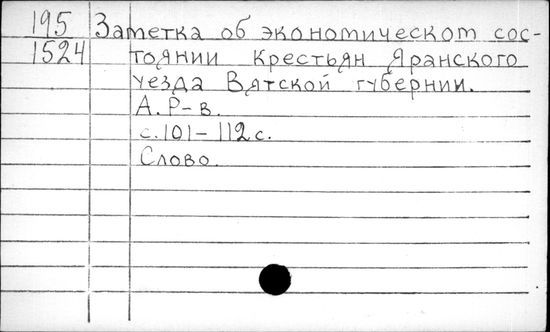 195 Заметка об экономическом сос-
1524 тоянии Крестьян Яранского
уезда Вятской губернии.
А. Р-в.
с. 101-112 с.
Слово.